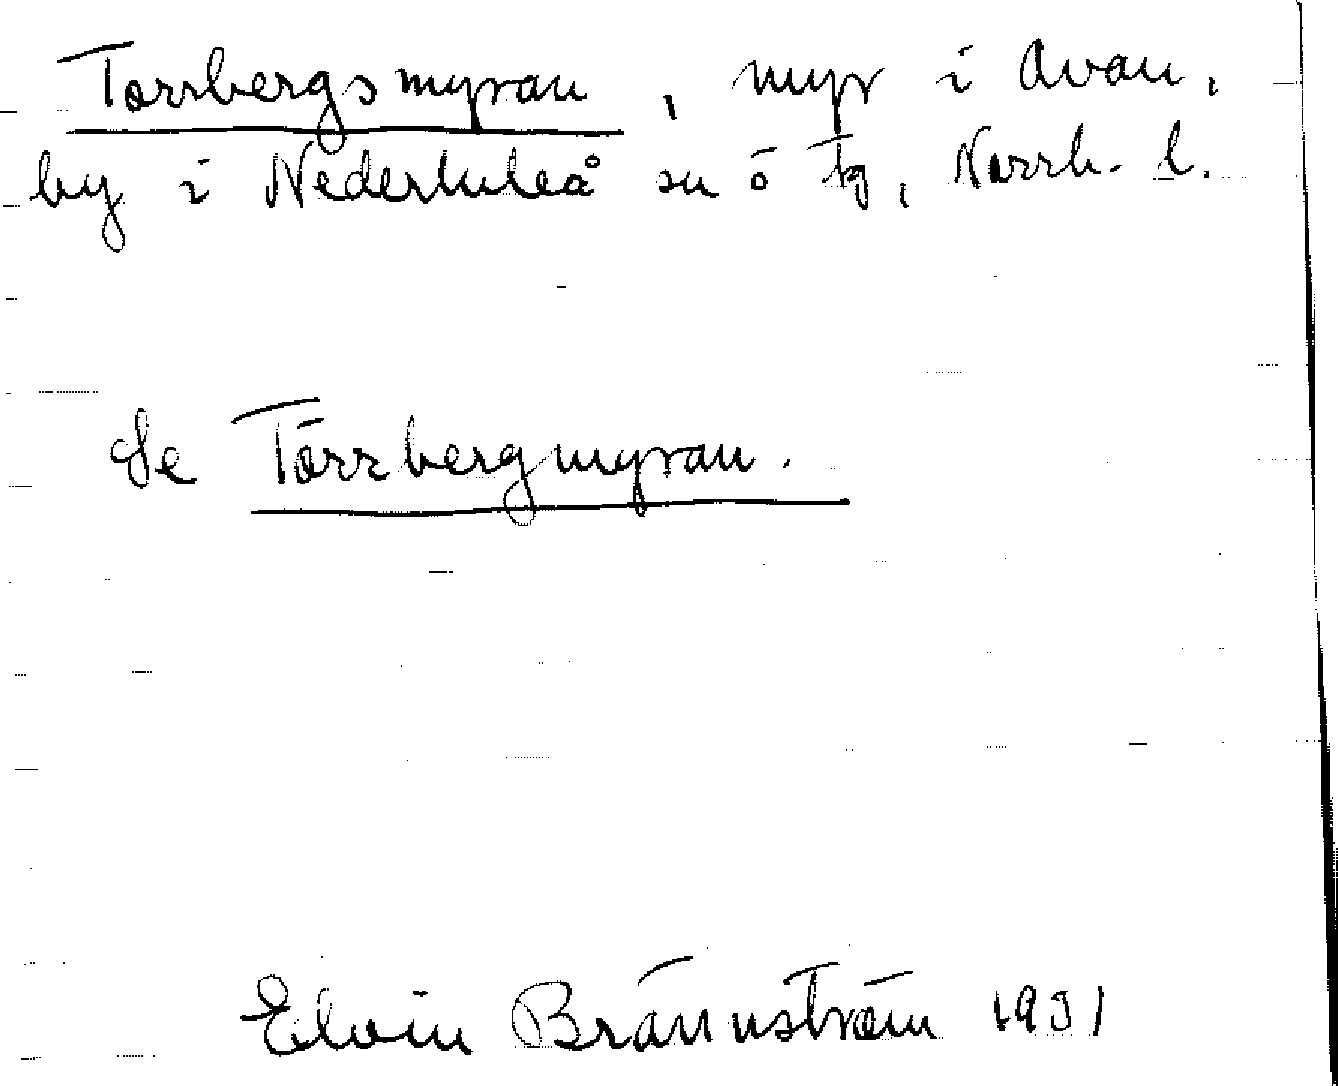 Torrbergsmyran, myr i Avan,
by i Nederluleå sn ö tg, Norrb. l.
Se Törrbergmyran.
Elvin Brännström 1931